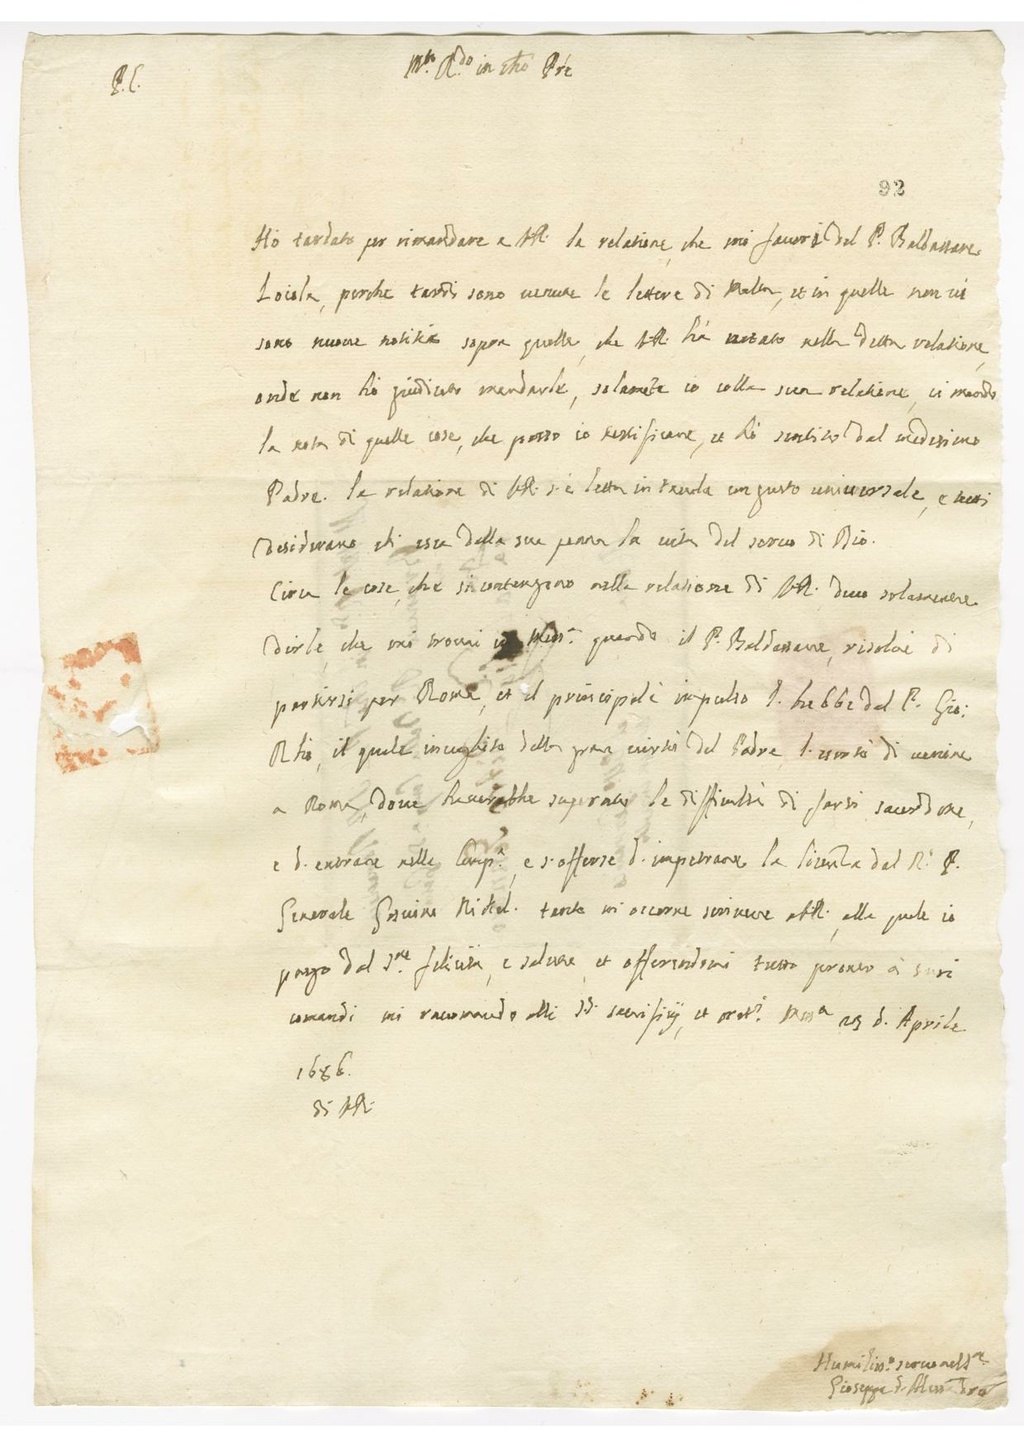 P.C.
M.to R.do in Xho Pre
92
Ho tardato per rimandare a VR. la relatione, che mi favorì del P. Baldassare
Loiola, perche tardi sono venute le lettere di Malta, et in quelle non vi
sono nuove notitie sopra quelle, che VR. hà notato nella detta relatione,
onde non hò giudicato mandarle, solamete io colla sua relatione, vi mando
la nota di quelle cose, che posso io testificare, et hò sentito dal medesimo
Padre. la relatione di VR. s'è letta in tavola con gusto universale, e tutti
desiderano ch'esca dalla sua penna la vita del servo di Dio.
Circa le cose, che si contengono nella relatione di VR. devo solamente
dirle, che mi trovai in Mess.a quando il P. Baldassare, risolvè di
partirsi per Roma, et il principale impulso l'hebbe dal P. Gio:
Rhò, il quale invaghito della gran virtù del Padre l'esortò di venire
a Roma, dove haverebbe superate le difficultà di farsi sacerdote,
e d'entrare nella Comp.a, e s'offerse d'impetrare la licenza dal N. P.
Generale Gosvino Nickel. tanto mi occorre scrivere a VR., alla quale io
prego dal S.re felicità, e salute, et offerendomi tutto pronto à suoi
comandi mi racomando alli SS. sacrifitij, et orat.i. Mess.a 23 d'Aprile
1686.
di VR.
Humiliss.o servo nel S.re
Gioseppe d'Aless.dro